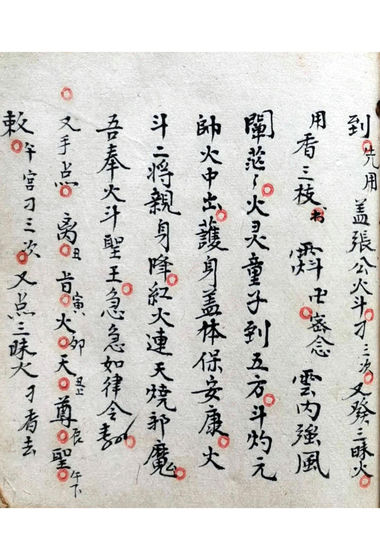 到先用盖張公火斗刁三次又発三昧火
用香三枝书卍密念雲内強風
闡茫々火灵童子到五方斗灼元
帥火中出護身盖体保安康火
斗二将親身降紅火連天焼邪魔
吾奉火斗聖王急急如律令
又手点离丑旨寅火卯天丑上尊辰聖午下
敕午宫刁三次又点三昧火刁香去